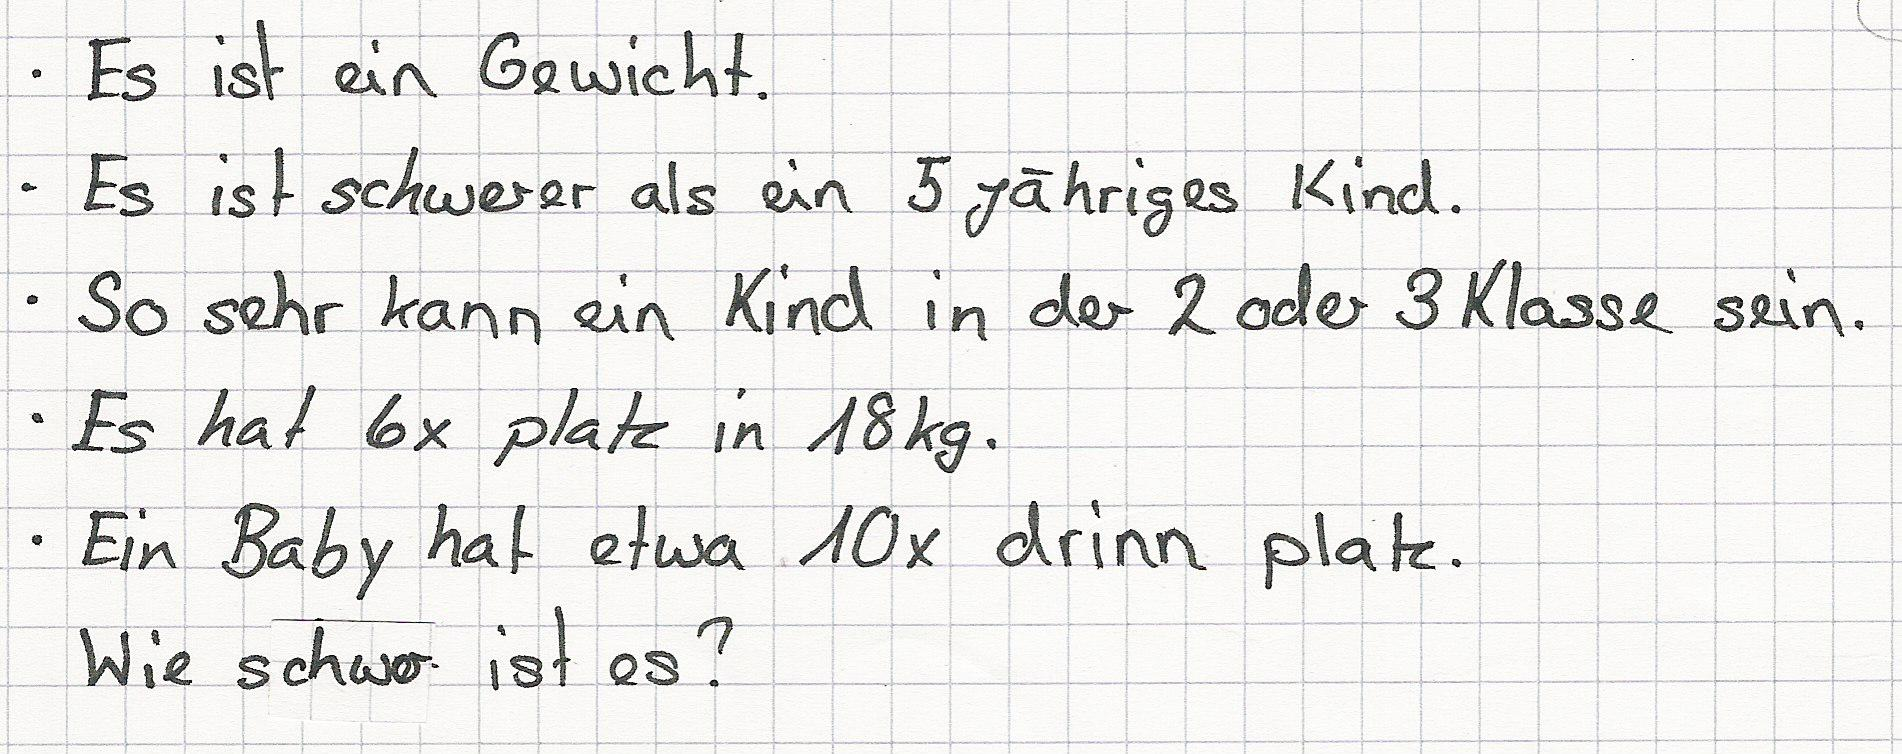 · Es ist ein Gewicht.
· Es ist schwerer als ein 5 jähriges Kind.
· So sehr kann ein Kind in der 2 oder 3 Klasse sein.
· Es hat 6x platz in 18kg.
· Ein Baby hat etwa 10x drinn platz.
Wie schwer ist es?